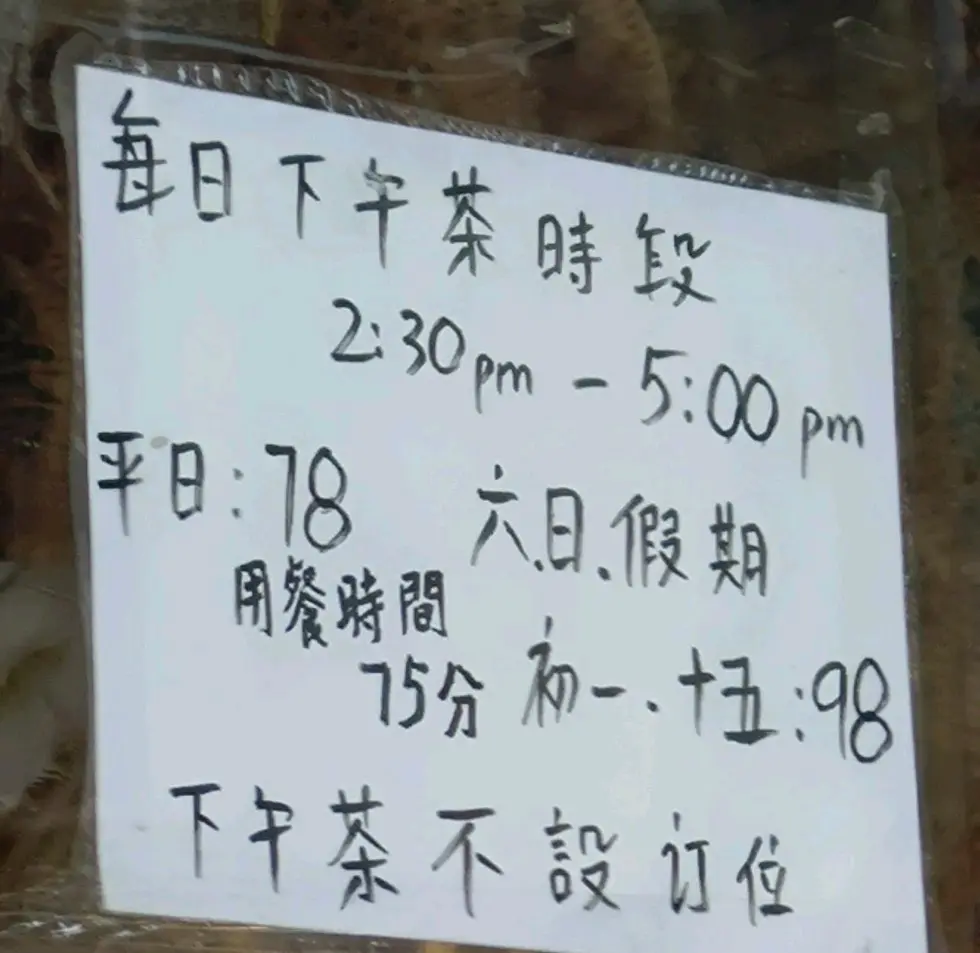 每日下午茶時段
2:30pm - 5:00pm
平日:78
用餐時間
75分
六.日.假期
初一.十五:98
下午茶不設订位